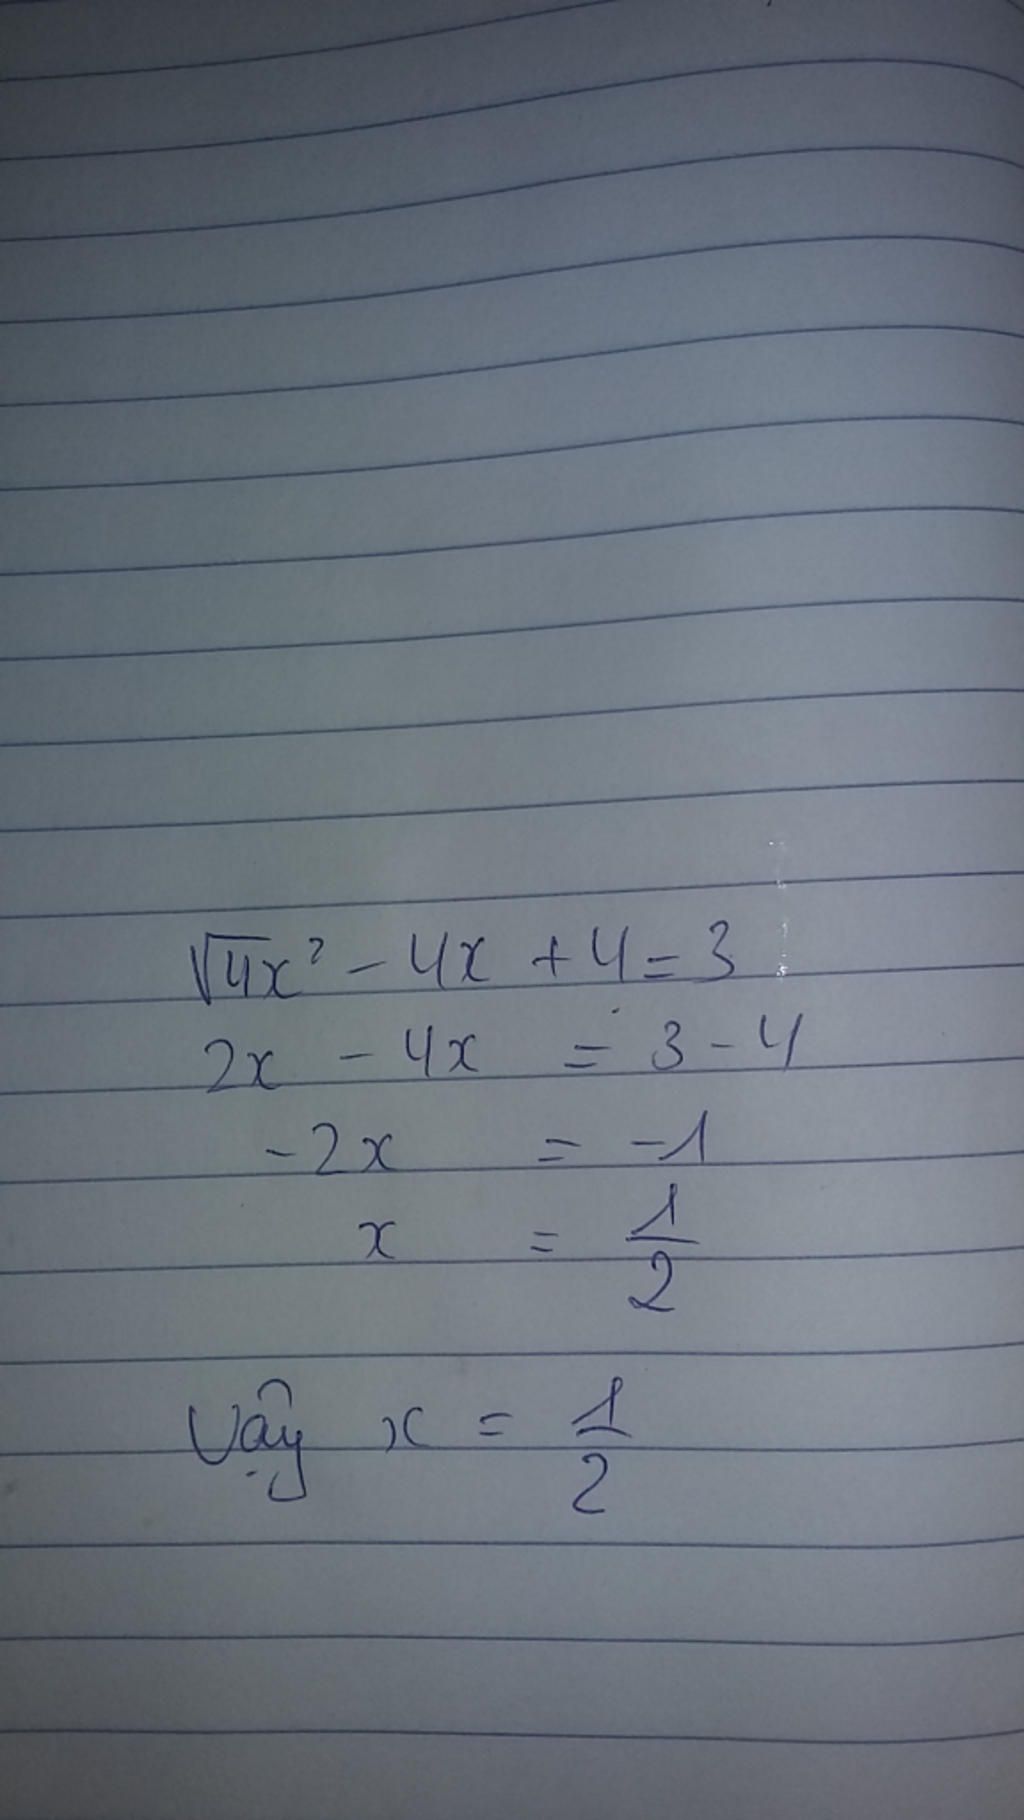 √4x² - 4x + 4 = 3
2x - 4x = 3 - 4
-2x = -1
x = 1/2
Vậy x = 1/2